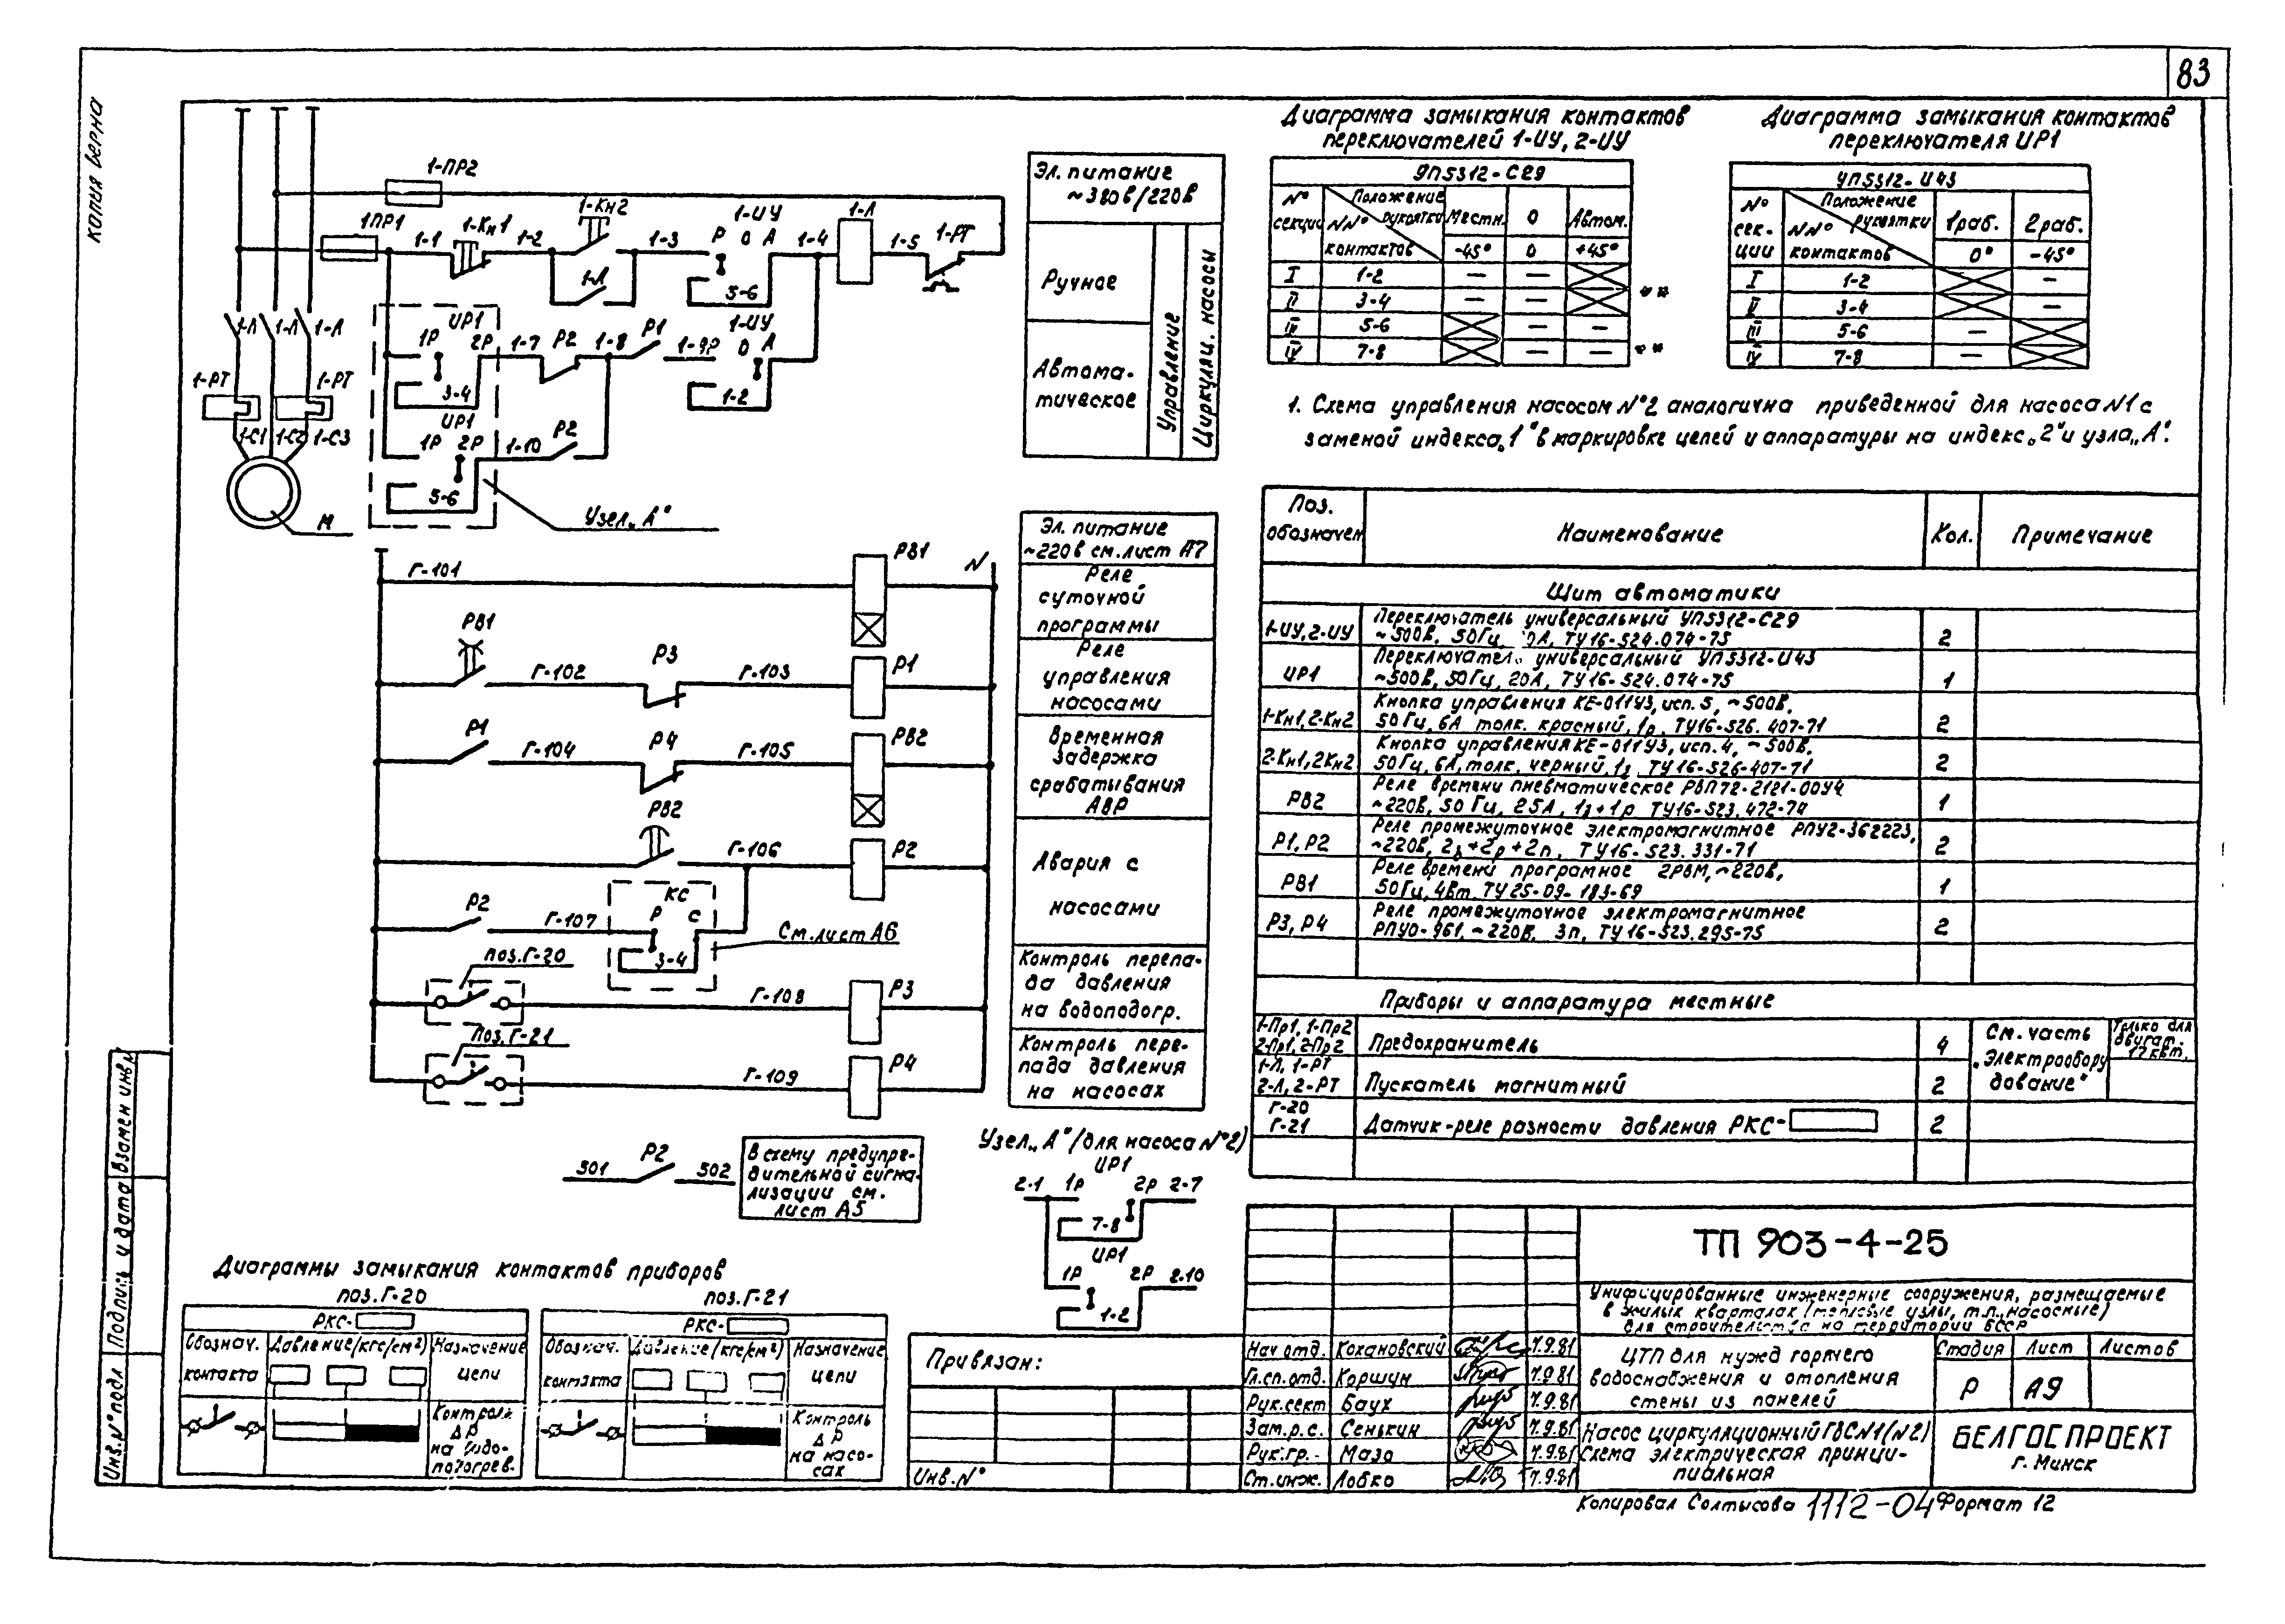 83
Копия верна
1-ПР2
1ПР1
1-1
1-Кн1
1-2
1-Кн2
1-Л
1-3
1-ИУ
Р О А
5-6
1-4
1-Л
1-5
1-РТ
1-Л 1-Л 1-Л
1-РТ
1-РТ
1-С1 1-С2 1-С3
М
ИР1
1Р 2Р
3-4
1-7
Р2
1-8
Р1
1-9Р
1-ИУ
О А
1-2
ИР1
1Р 2Р
5-6
1-10
Р2
Узел „А"
Эл. питание
~380в/220в
Ручное
Автома-
тическое
Управление
Циркуляц. насосы
Г-101
РВ1
N
РВ1
Г-102
Р3
Г-103
Р1
Р1
Г-104
Р4
Г-105
РВ2
РВ2
Г-106
Р2
Р2
Г-107
КС
Р С
3-4
См. лист А6
поз. Г-20
Г-108
Р3
Поз. Г-21
Г-109
Р4
Эл. питание
~220в см. лист А7
Реле
суточной
программы
Реле
управления
насосами
Временная
задержка
срабатывания
АВР
Авария с
насосами
Контроль перепа-
да давления
на водоподогр.
Контроль пере-
пада давления
на насосах
301
Р2
302
В схему предупре-
дительной сигна-
лизации см.
лист А5
Узел „А" (для насоса №2)
ИР1
2-1 1Р 2Р 2-7
7-8
ИР1
1Р 2Р 2-10
1-2
Диаграмма замыкания контактов
переключателей 1-ИУ, 2-ИУ
УП5312-С29
№ секции
Положение рукоятки
№№ контактов
Местн. О Автом.
-45° 0 +45°
I 1-2 — —
II 3-4 — —
III 5-6 — —
IV 7-8 — —
* *
* *
Диаграмма замыкания контактов
переключателя ИР1
УП5312-И43
№ сек-
ции
Положение рукоятки
№№ контактов
1раб. 2раб.
0° -45°
I 1-2 —
II 3-4 —
III 5-6 —
IV 7-8 —
1. Схема управления насосом №2 аналогична приведенной для насоса N1 с
заменой индекса „1" в маркировке цепей и аппаратуры на индекс „2" и узла „А".
Поз.
обозначен Наименование Кол. Примечание
Щит автоматики
1-ИУ, 2-ИУ Переключатель универсальный УП5312-С29
~500В, 50Гц, ТУ16-524.074-75 2
ИР1 Переключатель универсальный УП5312-И43
~500В, 50Гц, 20А, ТУ16-524.074-75 1
1-Кн1, 2-Кн2 Кнопка управления КЕ-011У3, исп. 5, ~500В,
50Гц, 6А толк. красный, 1р, ТУ16-526.407-71 2
2-Кн1, 2Кн2 Кнопка управления КЕ-011У3, исп. 4, ~500В,
50Гц, 6А, толк. черный, 1з ТУ16-526-407-71 2
РВ2 Реле времени пневматическое РВП72-2121-00У4
~220В, 50Гц, 25А, 1з+1р ТУ16-523.472-74 1
Р1, Р2 Реле промежуточное электромагнитное РПУ2-362223,
~220В, 2з+2р+2п, ТУ16-523.331-71 2
РВ1 Реле времени програмное 2РВМ, ~220В,
50Гц, 4Вт. ТУ25-09-183-69 1
Р3, Р4 Реле промежуточное электромагнитное
РПУ0-961, ~220В, 3п, ТУ16-523.295-75 2
Приборы и аппаратура местные
1-Пр1, 1-Пр2
2-Пр1, 2-Пр2 Предохранитель 4
1-Л, 1-РТ
2-Л, 2-РТ Пускатель магнитный 2
См. часть
„Электрообору
дование"
Только для
двигат.
17квт.
Г-20
Г-21 Датчик-реле разности давления РКС- 2
Диаграммы замыкания контактов приборов
поз. Г-20
РКС-
Обознач.
контакта
Давление (кгс/см²)
Назначение
цепи
Контроль
ΔР
на водо-
подогрев.
поз. Г-21
РКС-
Обознач.
контакта
Давление (кгс/см²)
Назначение
цепи
Контроль
ΔР
на насо-
сах
Привязан:
Инв. №
Инв. № подл Подпись и дата Взамен инв. №
ТП 903-4-25
Унифицированные инженерные сооружения, размещаемые
в жилых кварталах (тепловые узлы, т.п., насосные)
для строительства на территории БССР
Нач отд. Кохановский 7.9.81
Гл.сп.отд. Коршун 7.9.81
Рук.сект Баух 7.9.81
Зам.р.с. Сенькин 7.9.81
Рук.гр. Мазо 7.9.81
Ст.инж. Лобко 7.9.81
ЦТП для нужд горячего
водоснабжения и отопления
стены из панелей
Стадия Лист Листов
Р А9
Насос циркуляционный ГВС №1 (№2)
Схема электрическая принци-
пиальная
БЕЛГОСПРОЕКТ
г. Минск
Копировал Солтысова 1112-04 Формат 12